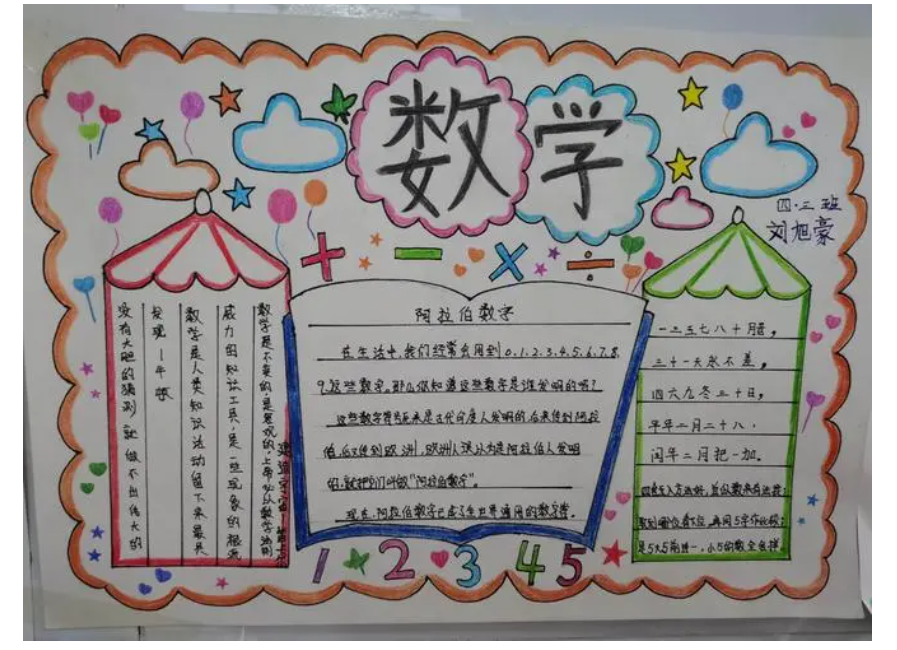 数学
四.三班
刘旭豪
+ - × ÷
没有大胆的猜测,就做不出伟大的
发现—牛顿
数学是人类知识活动留下来最具
威力的知识工具,是一些现象的根源
数学是不变的,是客观的,上帝必以数学法则
建造宇宙
阿拉伯数字
在生活中,我们经常会用到0.1.2.3.4.5.6.7.8.
9.这些数字。那么你知道这些数字是谁发明的吗?
这些数字符号原来是古代印度人发明的,后来传到阿拉
伯,后又传到欧洲,欧洲人误认为是阿拉伯人发明
的,就把它们叫做"阿拉伯数字"。
现在,阿拉伯数字已成了全世界通用的数字符
一三五七八十月,
三十一天永不差,
四六九冬三十日,
平年二月二十八,
闰年二月把一加.
四舍五入方法好,近似数来有法找;
取到哪位看下位,再同5字作比较;
是5大5前进一,小5的数全舍掉
1 2 3 4 5